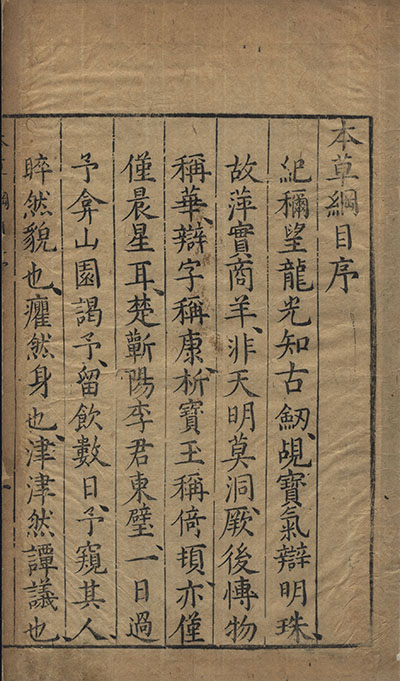 本草綱目序
紀稱望龍光知古劒、覘寶氣辯明珠、
故萍實商羊、非天明莫洞、厥後愽物
稱華、辯字稱康、析寳玉稱倚頓、亦僅
僅晨星耳、楚蘄陽李君東璧、一日過
予弇山園謁予、留飲數日、予窺其人、
睟然貌也、癯然身也、津津然譚議也